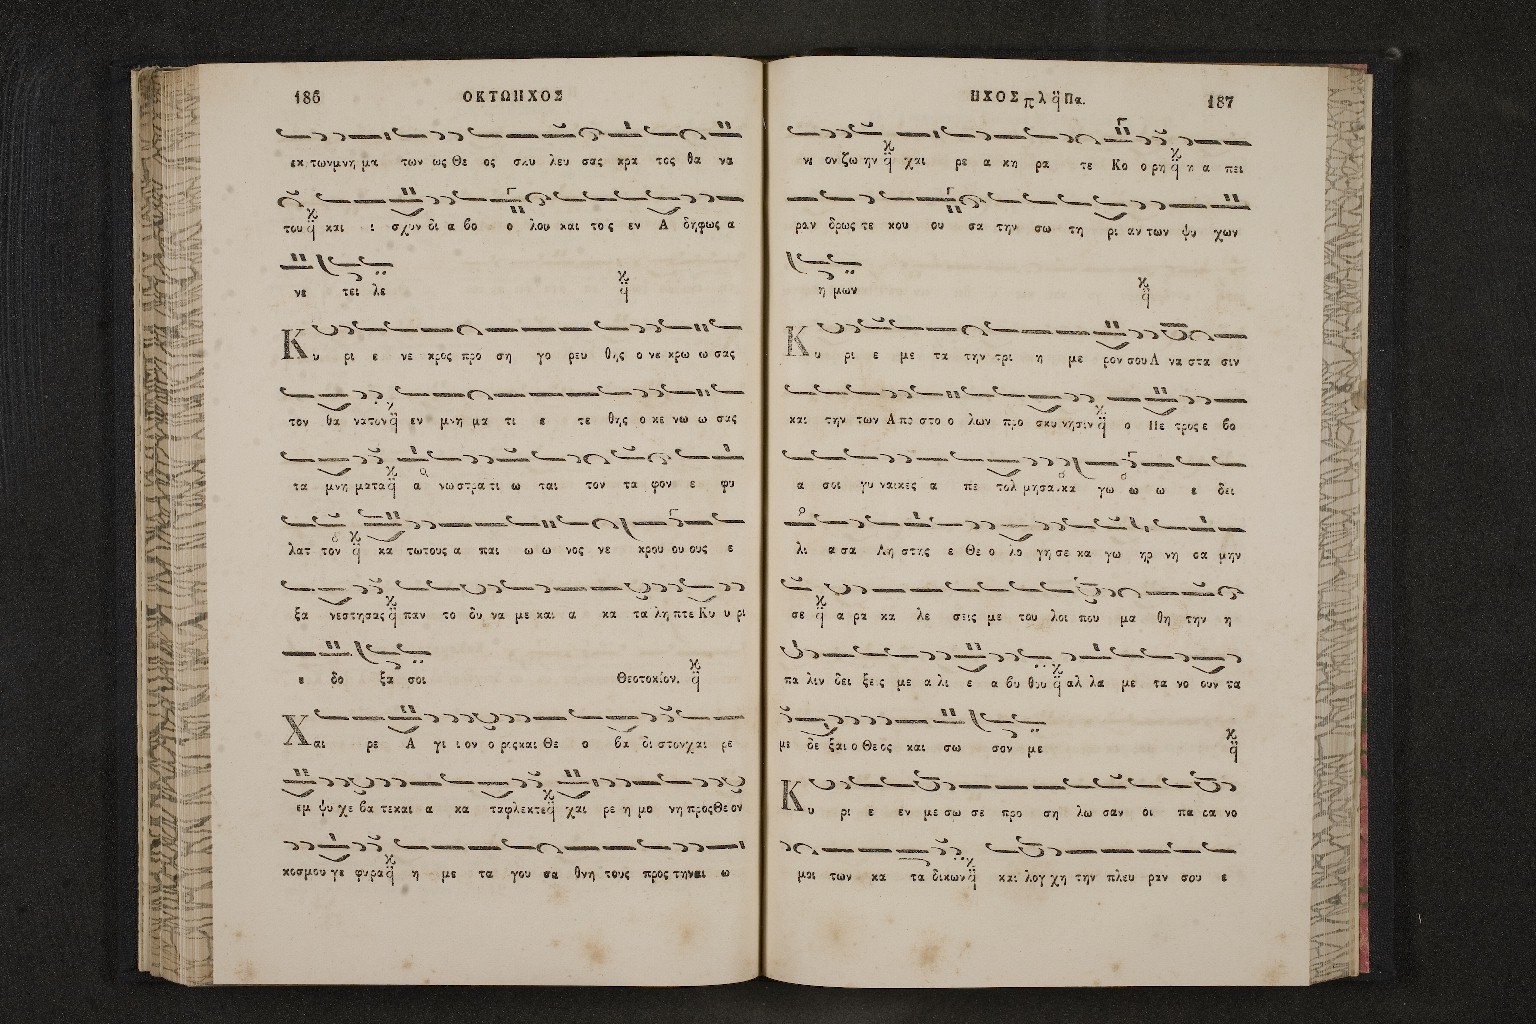 186
ΟΚΤΩΗΧΟΣ
εκ τωνμνη μα των ως Θε ος σκυ λευ σας κρα τος θα να
του και ι σχυν δι α βο ο λου και τος εν Α δηφως α
νε τει λε
Κυ ρι ε νε κρος προ ση γο ρευ θης ο νε κρω ω σας
τον θα νατον εν μνη μα τι ε τε θης ο κε νω ω σας
τα μνη ματα α νωστρατι ω ται τον τα φον ε φυ
λατ τον κα τωτους α παι ω ω νος νε κρου ου ους ε
ξα νεστησας παν το δυ να με και α κα τα λη πτε Κυ υ ρι
ε δο ξα σοι Θεοτοκίον.
Χαι ρε Α γι ι ον ο ροςκαι Θε ο βα δι στονχαι ρε
εμ ψυ χε βα τεκαι α κα ταφλεκτε χαι ρε η μο νη προςΘε ον
κοσμου γε φυρα η με τα γου σα θνη τους προς τηναι ω
ΗΧΟΣ πλ Πα.
187
νι ον ζω ην χαι ρε α κη ρα τε Κο ο ρη η α πει
ραν δρως τε κου ου σα την σω τη ρι αν των ψυ χων
η μων
Κυ ρι ε με τα την τρι η με ρον σου Α να στα σιν
και την των Α πο στο ο λων προ σκυ νησιν ο Πε τρος ε βο
α σοι γυ ναικες α πε τολ μησαν κα γω ω ω ε δει
λι α σα Λη στης ε Θε ο λο γη σε κα γω ηρ νη σα μην
σε α ρα κα λε σεις με του λοι που μα θη την η
πα λιν δει ξεις με α λι ε α βυ θου αλ λα με τα νο ουν τα
με δε ξαι ο Θε ος και σω σον με
Κυ ρι ε εν με σω σε προ ση λω σαν οι πα ρα νο
μοι των κα τα δικων και λογ χη την πλευ ραν σου ε